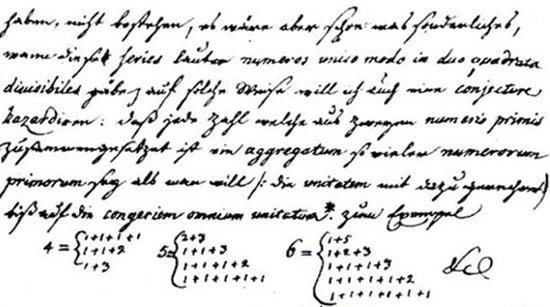 haben, nicht bestehen, es wäre aber schon was sonderliches,
wann diese series lauter numeros unico modo in duo quadrata
divisibiles gäbe; auf solche Weise will ich auch eine conjecture
hazardiren: daß jede Zahl welche aus zweyen numeris primis
zusammengesetzet ist ein aggregatum so vieler numerorum
primorum sey als man will /: die unitatem mit dazu gerechnet)
biß auf die congeriem omnium unitatum*. zum Exempel
4 = { 1+1+1+1 5 = { 2+3 6 = { 1+5
1+1+2 1+1+3 1+2+3
1+3 1+1+1+2 1+1+1+3 &c
1+1+1+1+1 1+1+1+1+2
1+1+1+1+1+1